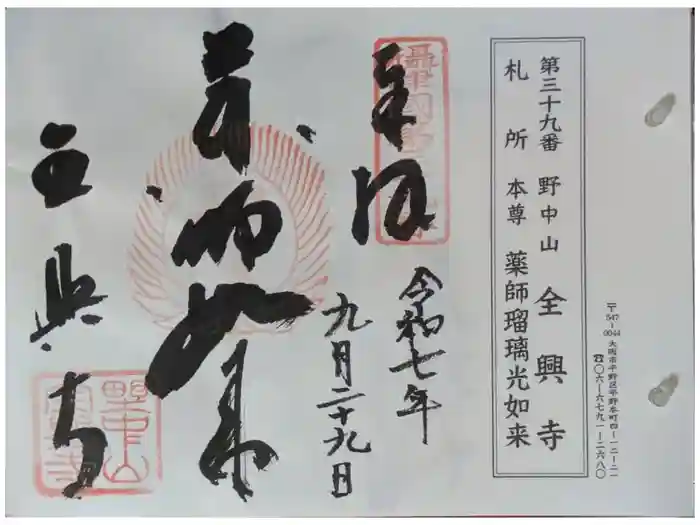 第三十九番 野中山 全興寺
札所 本尊 薬師瑠璃光如来
〒547-0044 大阪市平野区平野本町四-一二-二一
☎〇六-六七九一-二六八〇
奉拝
令和七年
九月二十九日
薬師如来
全興寺
野中山